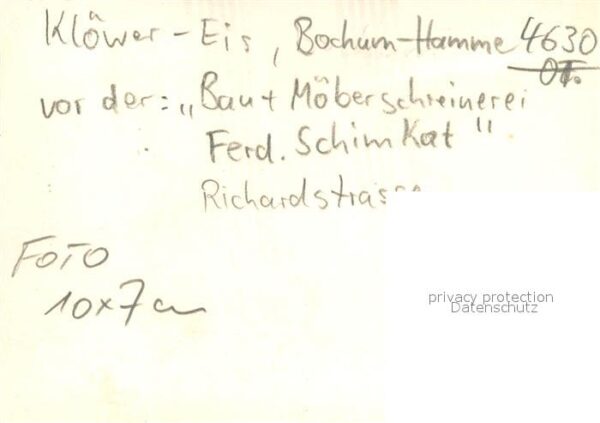 Klöwer - Eis, Bochum-Hamme 4630
OT.
vor der: "Bau + Möberschreinerei
Ferd. Schimkat"
Richardstrasse
FOTO
10x7cm
privacy protection
Datenschutz